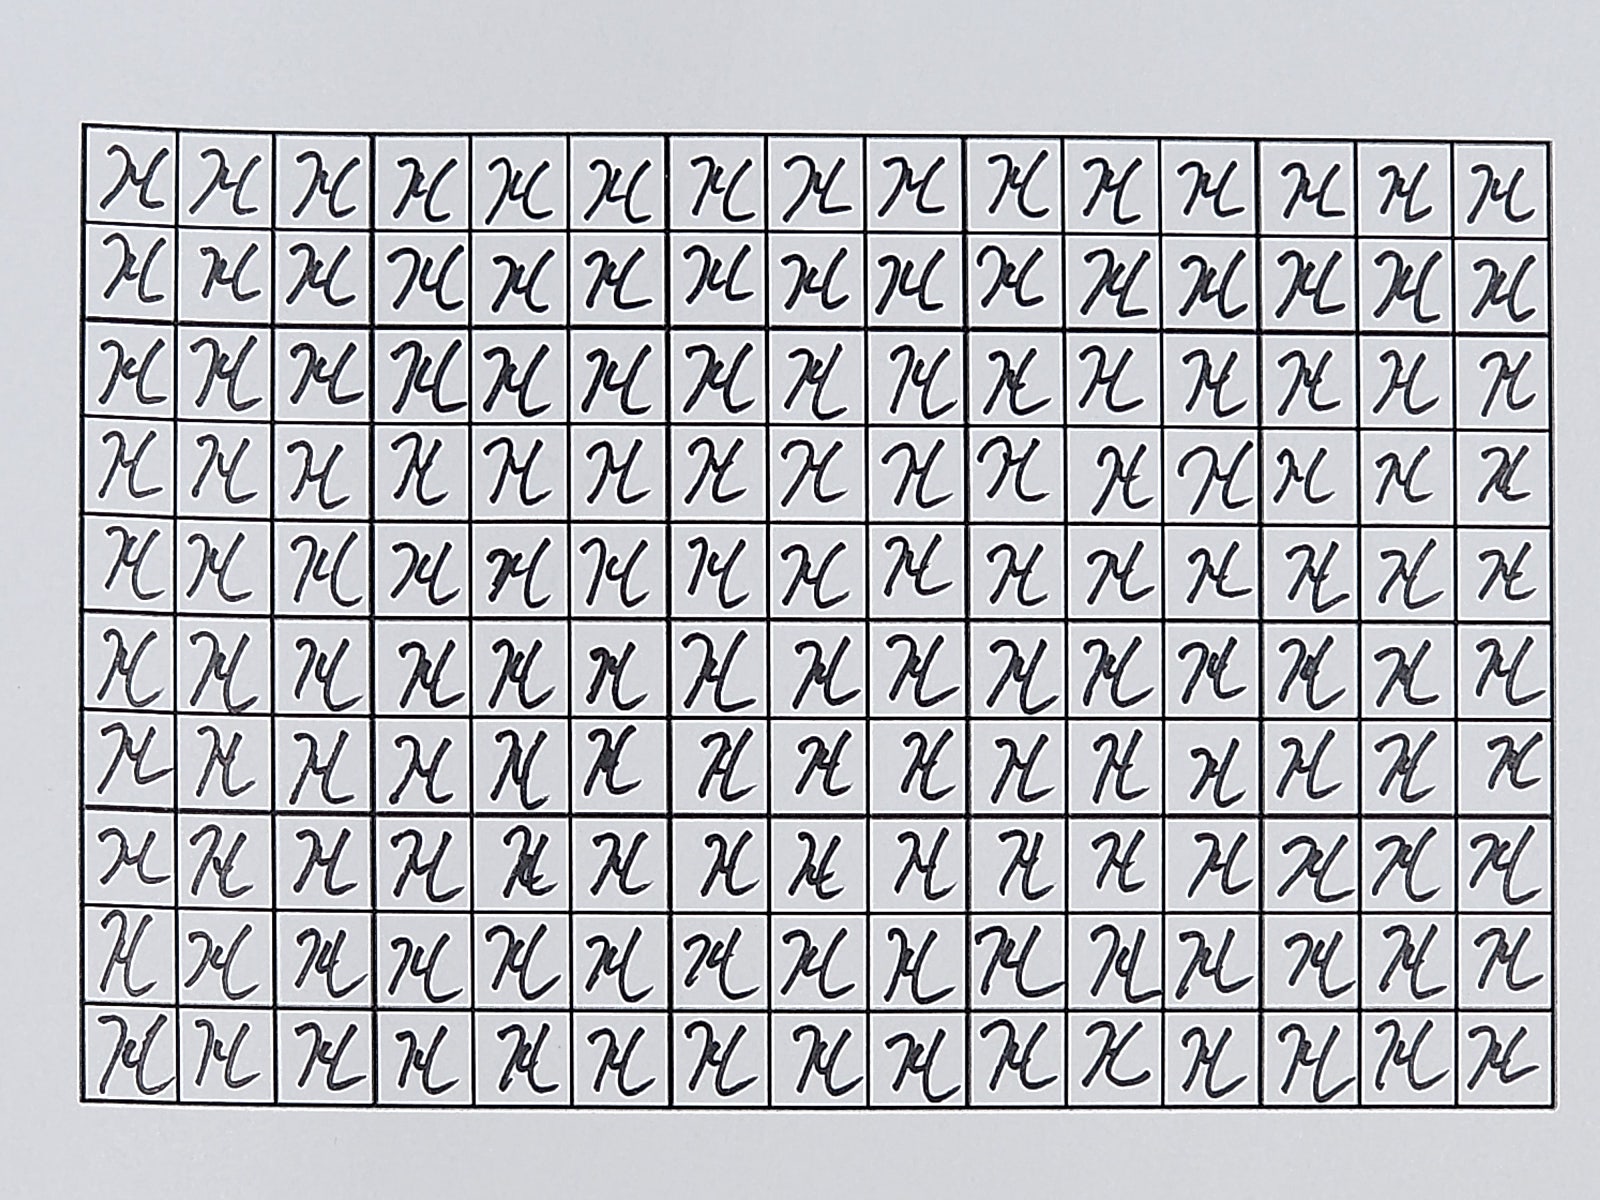 H H H H H H H H H H H H H H H
H H H H H H H H H H H H H H H
H H H H H H H H H H H H H H H
H H H H H H H H H H H H H H H
H H H H H H H H H H H H H H H
H H H H H H H H H H H H H H H
H H H H H H H H H H H H H H H
H H H H H H H H H H H H H H H
H H H H H H H H H H H H H H H
H H H H H H H H H H H H H H H